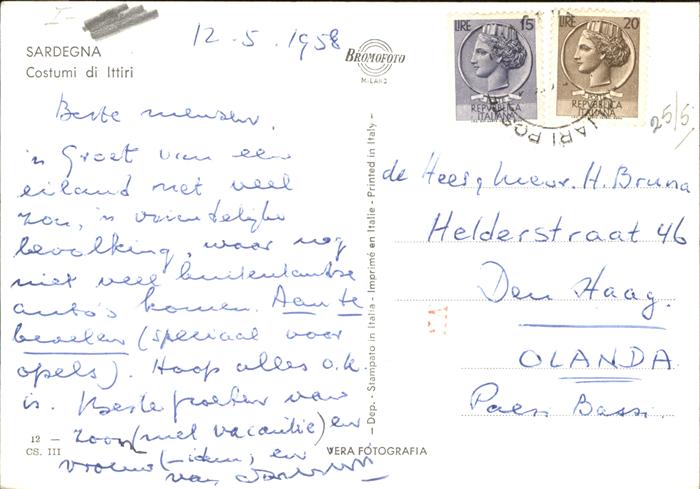 SARDEGNA
Costumi di Ittiri
12.5.1958
BROMOFOTO
MILANO
LIRE 15
REPVBBLICA
ITALIANA
LIRE 20
REPVBBLICA
ITALIANA
25/5
Beste mensen,
'n Groet van een
eiland met veel
zon, 'n vriendelijke
bevolking, waar nog
niet veel buitenlandse
auto's komen. Aan te
bevelen (speciaal voor
opels). Hoop alles o.k.
is. Beste groeten van
zoon (met vacantie) en
vrouw (-idem) en
van
de Heer H. Bruna
Helderstraat 46
Den Haag.
OLANDA
Paesi Bassi.
12 —
CS. III
VERA FOTOGRAFIA
— Dep. - Stampato in Italia - Imprimé en Italie - Printed in Italy -